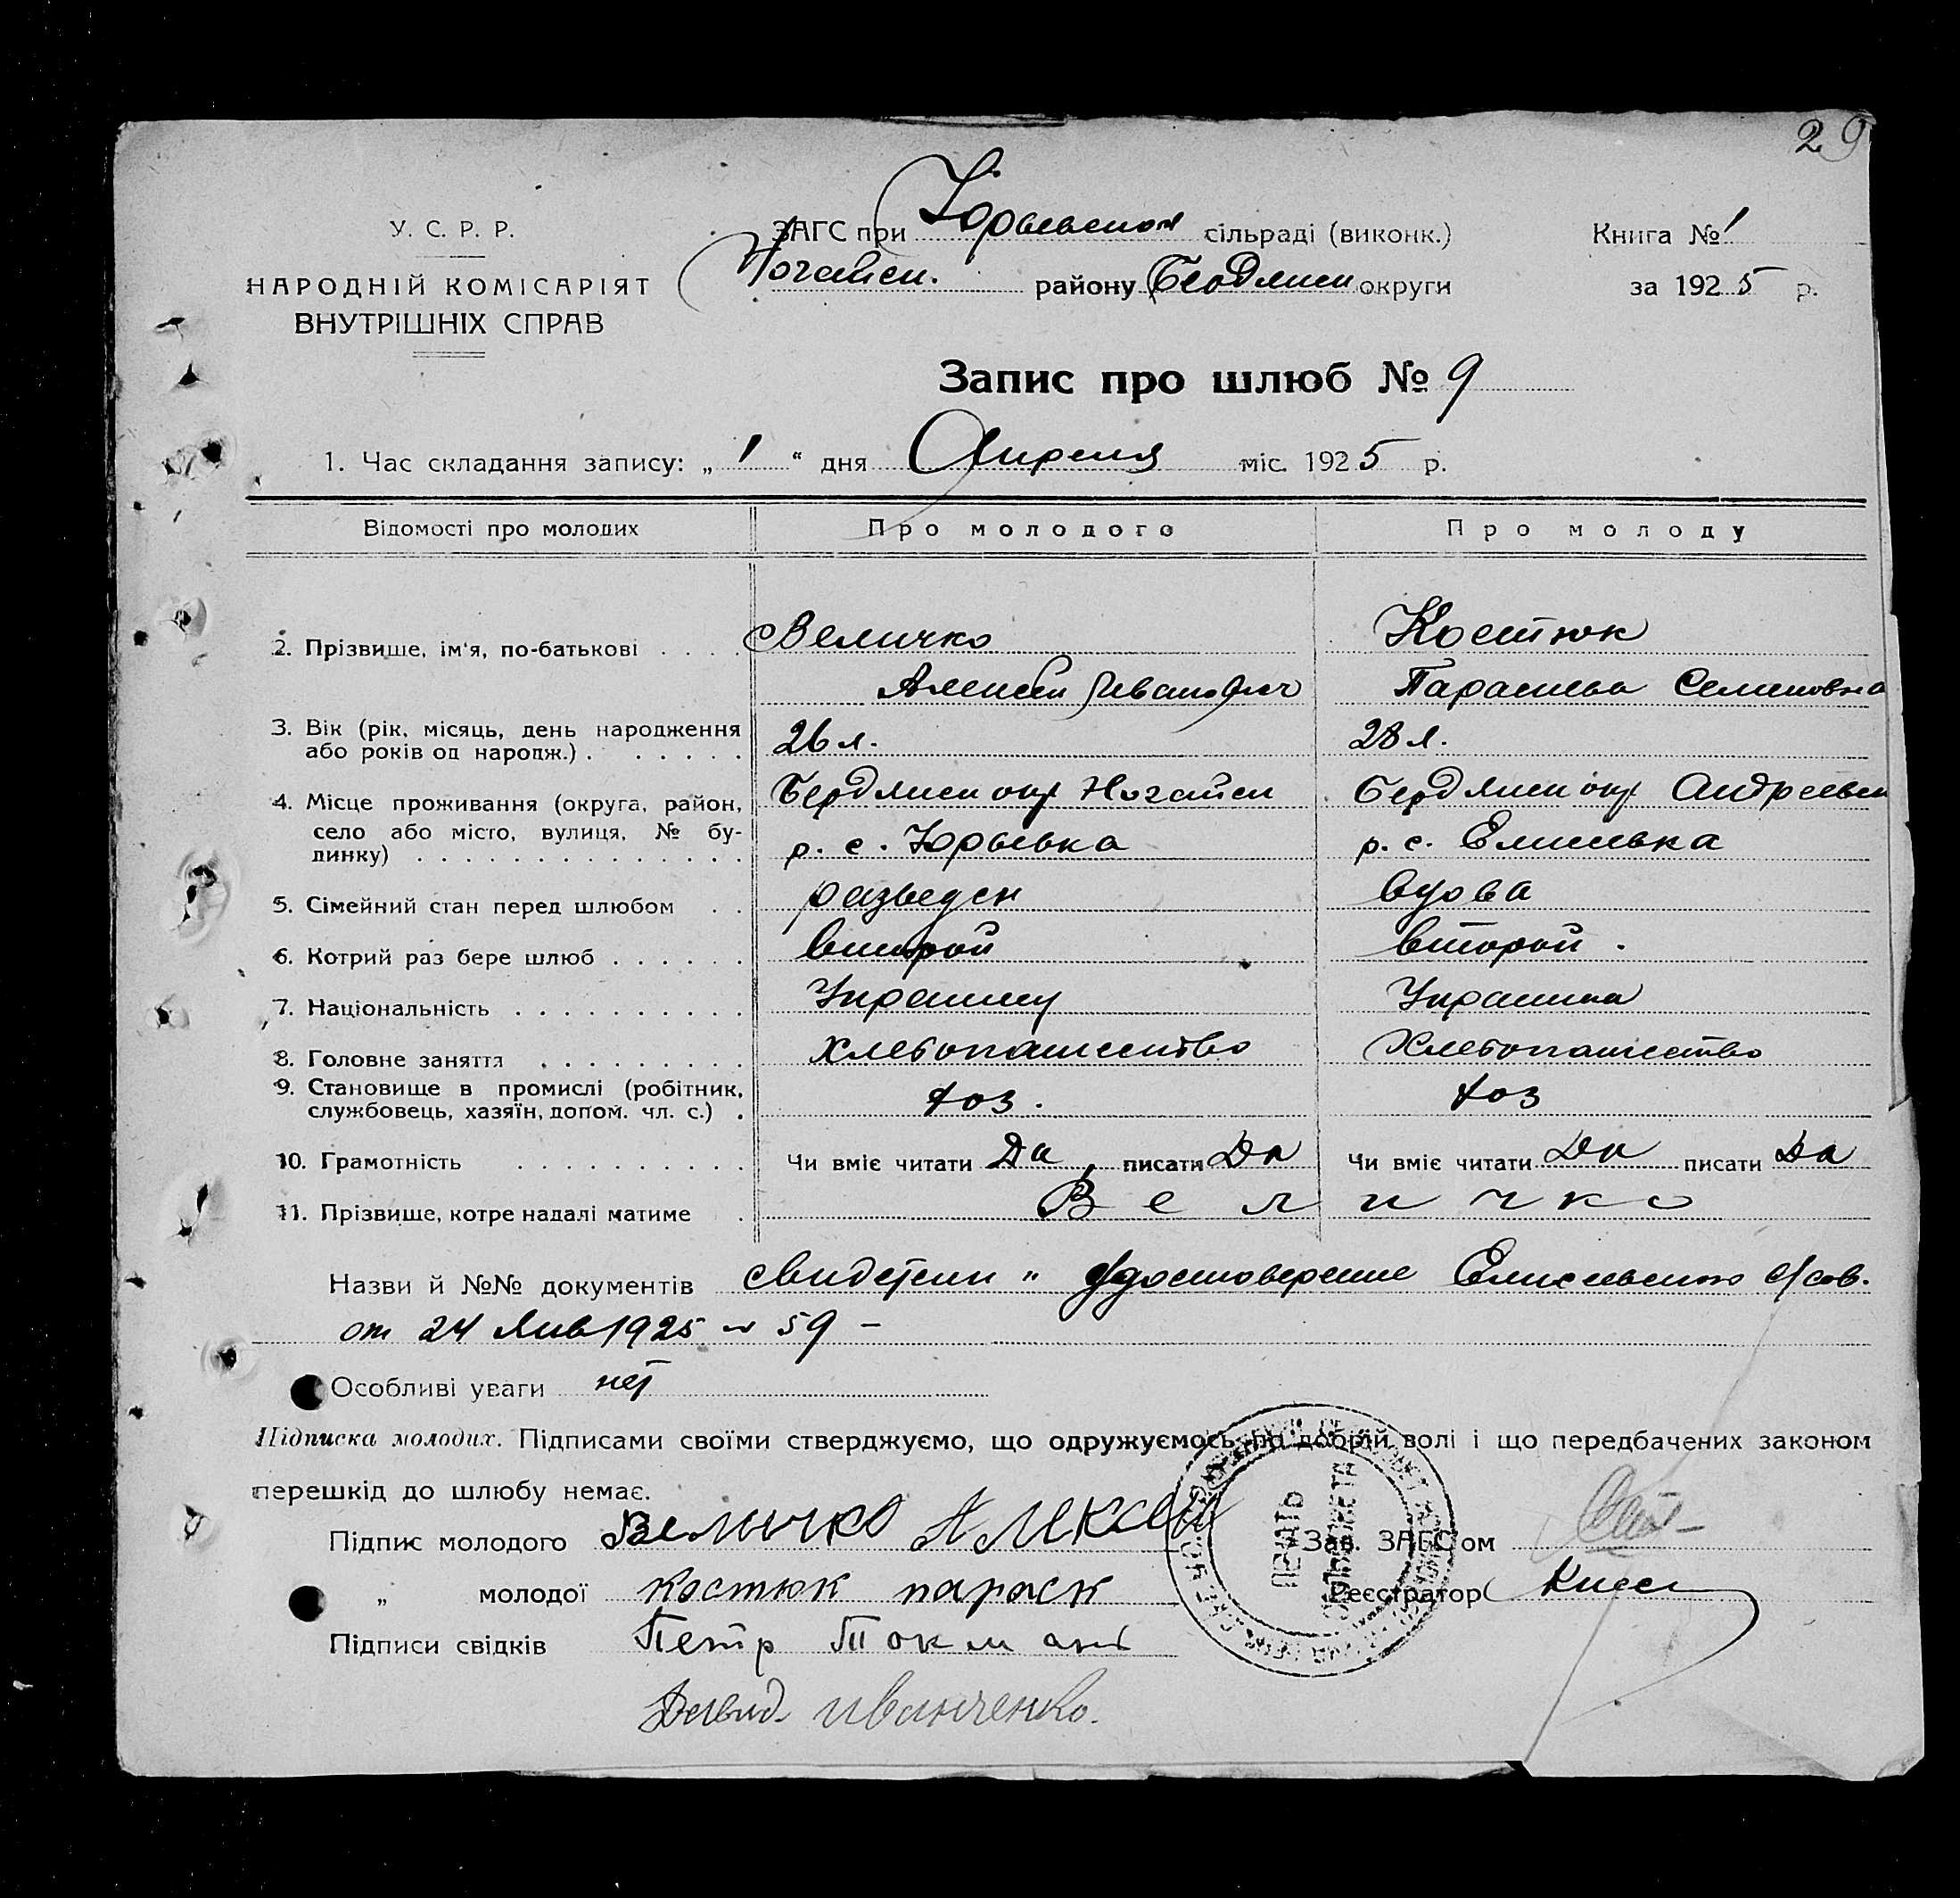 29
У. С. Р. Р.
НАРОДНІЙ КОМІСАРІЯТ
ВНУТРІШНІХ СПРАВ
ЗАГС при Юрьевском сільраді (виконк.)
Ногайск. району Бердянск округи
Книга № 1
за 1925 р.
Запис про шлюб № 9
1. Час складання запису: „ 1 “ дня Апреля міс. 1925 р.
Відомості про молодих Про молодого Про молоду
2. Прізвище, ім'я, по-батькові . . . . Величко Костюк
Алексей Иванович Парасковья Семеновна
3. Вік (рік, місяць, день народження або років од народж.) . . . . . . 26 л. 28 л.
4. Місце проживання (округа, район, Бердянск окр Ногайск Бердянск окр Андреевск
село або місто, вулиця, № будинку) . . . . р. с. Юрьевка р. с. Елисеевка
5. Сімейний стан перед шлюбом . . разведен вдова
6. Котрий раз бере шлюб . . . . . . второй второй.
7. Національність . . . . . . . . . . Украинец Украинка
8. Головне заняття . . . . . . . . . хлебопашество Хлебопашество
9. Становище в промислі (робітник, службовець, хазяїн, допом. чл. с.) . хоз. хоз
10. Грамотність . . . . . . . . . . Чи вміє читати Да, писати Да Чи вміє читати Да писати Да
11. Прізвище, котре надалі матиме . Величко
Назви й №№ документів Свидетели " Удостоверение Елисеевского с/сов.
от 24 Янв 1925 № 59 –
Особливі уваги нет
Підписка молодих. Підписами своїми стверджуємо, що одружуємось по добрій волі і що передбачених законом
перешкід до шлюбу немає.
Підпис молодого Величко Алексей
Зав. ЗАГС'ом
„ молодої костюк параск
Реєстратор
Підписи свідків Петр Токмань
Давид иванченко.
ПЕЧАТЬ
СЕЛЬСОВЕТА